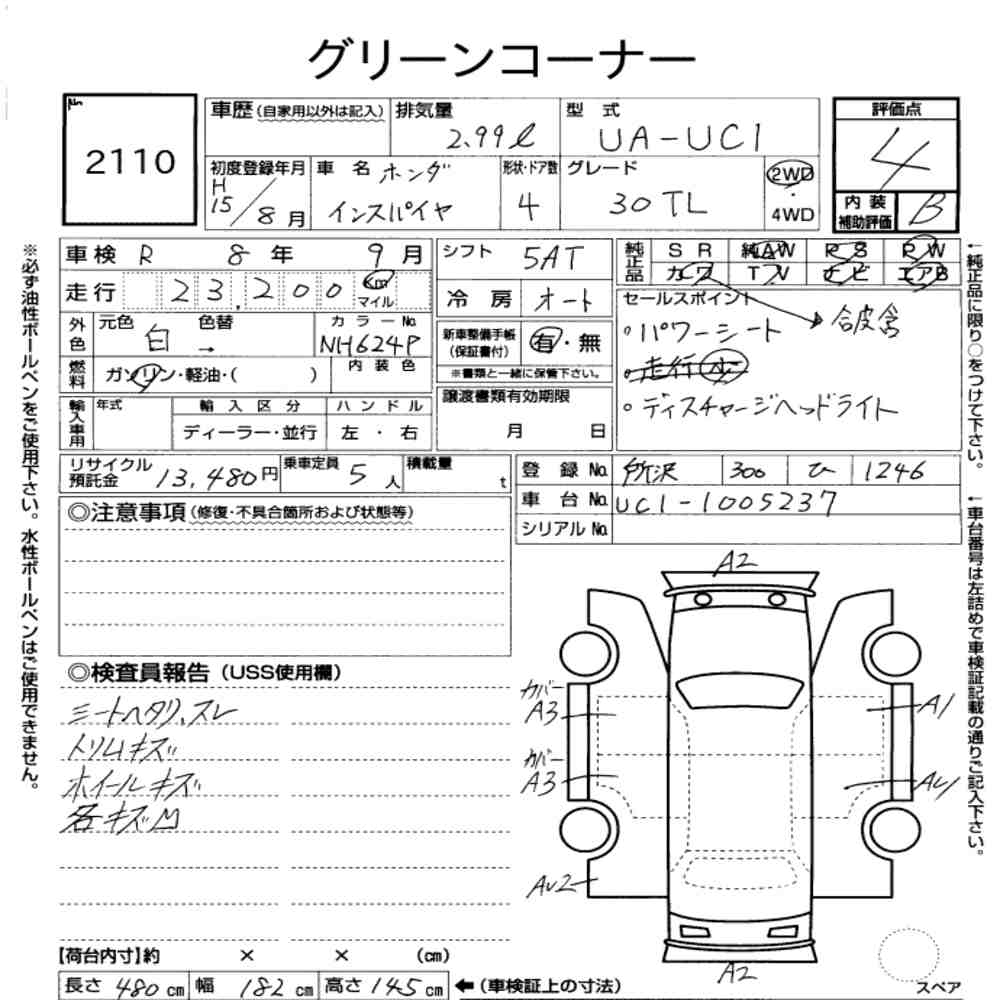 グリーンコーナー
No.
2110
車歴（自家用以外は記入）
排気量
2.99ℓ
型 式
UA-UC1
評価点
4
内装補助評価
B
初度登録年月
H15/8月
車 名
ホンダ
インスパイヤ
形状・ドア数
4
グレード
30TL
2WD
・
4WD
車検 R 8年 9月
走行 23,200 Km マイル
シフト 5AT
冷 房 オート
純正品
SR 純AW RS PW
カワ TV ナビ エアB
外色
元色 白
色替 →
カラーNo.
NH624P
燃料
ガソリン・軽油・( )
内装色
新車整備手帳（保証書付）
有・無
※書類と一緒に保管下さい。
セールスポイント
→合皮含
・パワーシート
走行 少
・ディスチャージヘッドライト
輸入車用
年式
輸入区分
ディーラー・並行
ハンドル
左・右
譲渡書類有効期限
月 日
リサイクル預託金
13,480円
乗車定員
5人
積載量
t
登録No. 所沢 300 ひ 1246
車台No. UC1-1005237
シリアルNo.
◎注意事項（修復・不具合箇所および状態等）
◎検査員報告（USS使用欄）
シートヘタリ、スレ
トリムキズ
ホイールキズ
各キズM
A2
カバー
A3
A1
カバー
A3
AU1
AU2
A2
スペア
【荷台内寸】約 × × (cm)
長さ 480 cm 幅 182 cm 高さ 145 cm ←（車検証上の寸法）
※必ず油性ボールペンをご使用下さい。水性ボールペンはご使用できません。
←純正品に限り○をつけて下さい。
←車台番号は左詰めで車検証記載の通りご記入下さい。